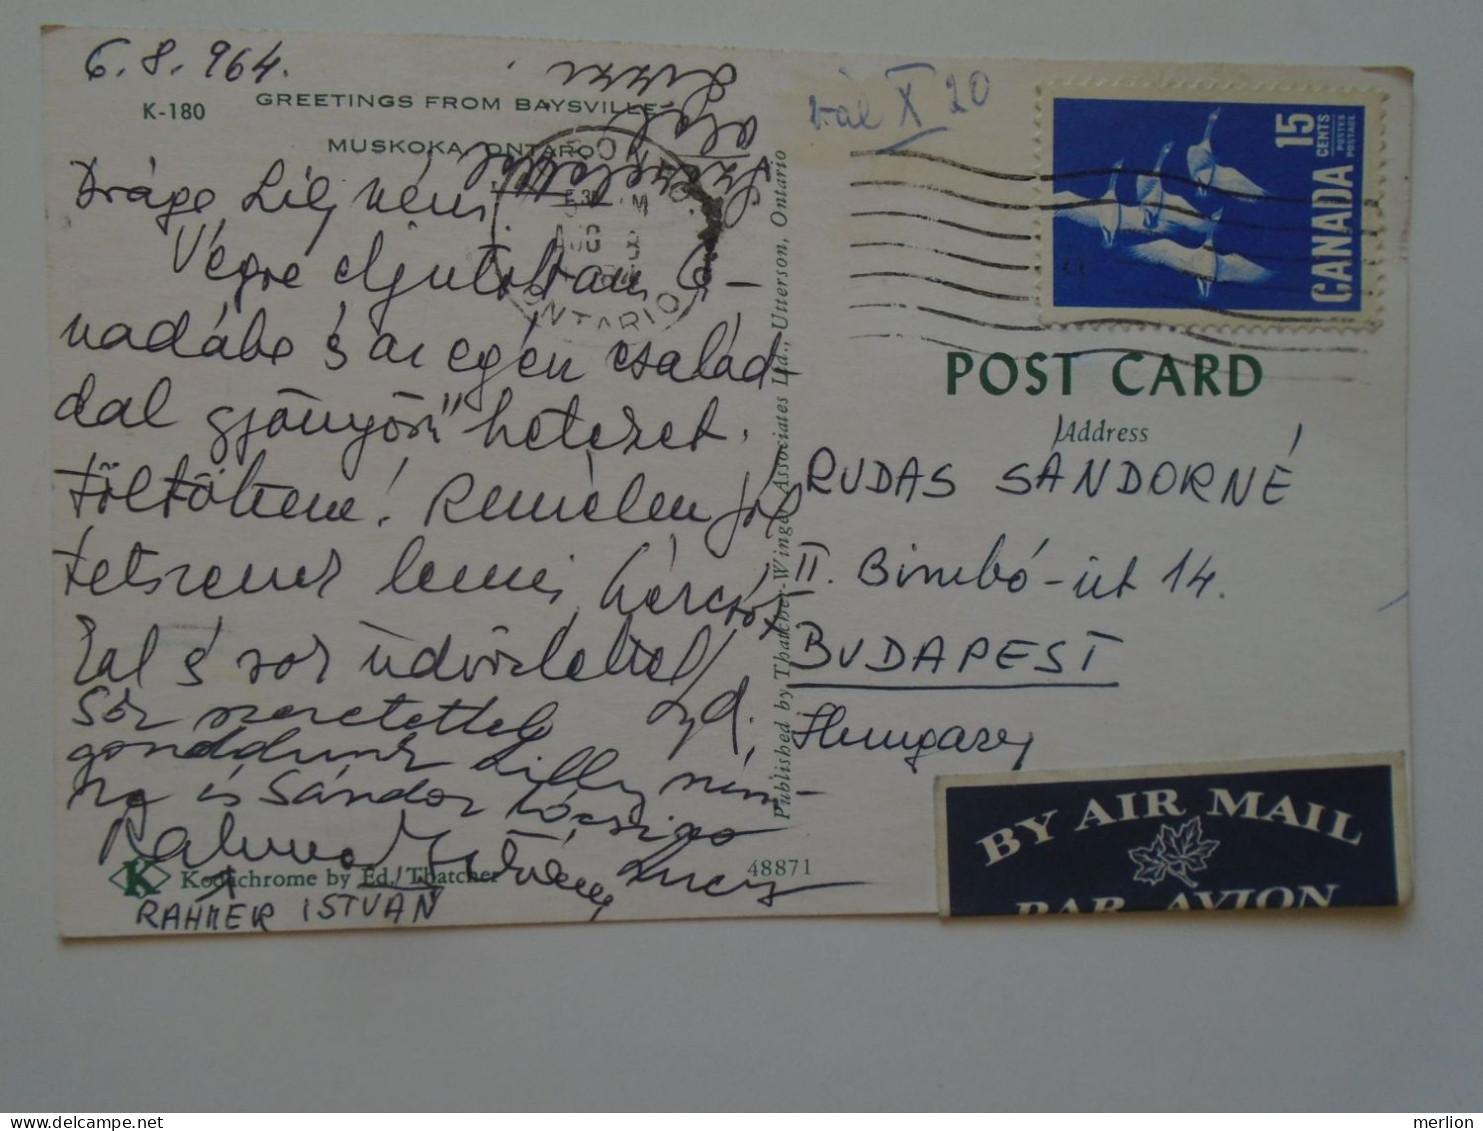 6. 8. 964.
K-180 GREETINGS FROM BAYSVILLE
MUSKOKA, ONTARIO
Drága Lily néni
Végre eljutottam Ca-
nadába s az egész család-
dal gyönyörű heteket
töltöttem! Remélem jól
tetszenek lenni,
s sok üdvözlettel
Sok szeretettel
gondolunk Lilly néni-
re és Sándor bácsira
RAHMER ISTVÁN
Kodachrome by Ed. Thatcher
48871
Published by Thatcher-Winger Associates Ltd., Utterson, Ontario
szeretettel
ölel
Lizzi
vál X 20
AUG
ONTARIO
15
CENTS
POSTES
POSTAGE
CANADA
POST CARD
Address
RUDAS SÁNDORNÉ
II. Bimbó-út 14.
BUDAPEST
Hungary
BY AIR MAIL
PAR AVION